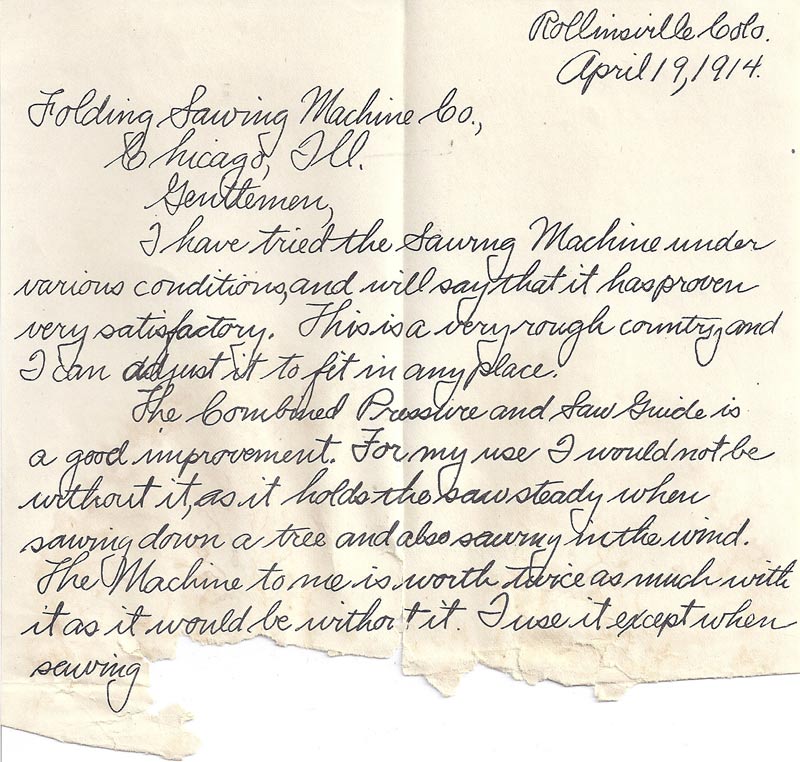 Rollinsville Colo.
April 19, 1914.
Folding Sawing Machine Co.,
Chicago, Ill.
Gentlemen,
I have tried the Sawing Machine under
various conditions, and will say that it has proven
very satisfactory. This is a very rough country, and
I can adjust it to fit in any place.
The Combined Pressure and Saw Guide is
a good improvement. For my use I would not be
without it, as it holds the saw steady when
sawing down a tree and also sawing in the wind.
The Machine to me is worth twice as much with
it as it would be without it. I use it except when
sawing